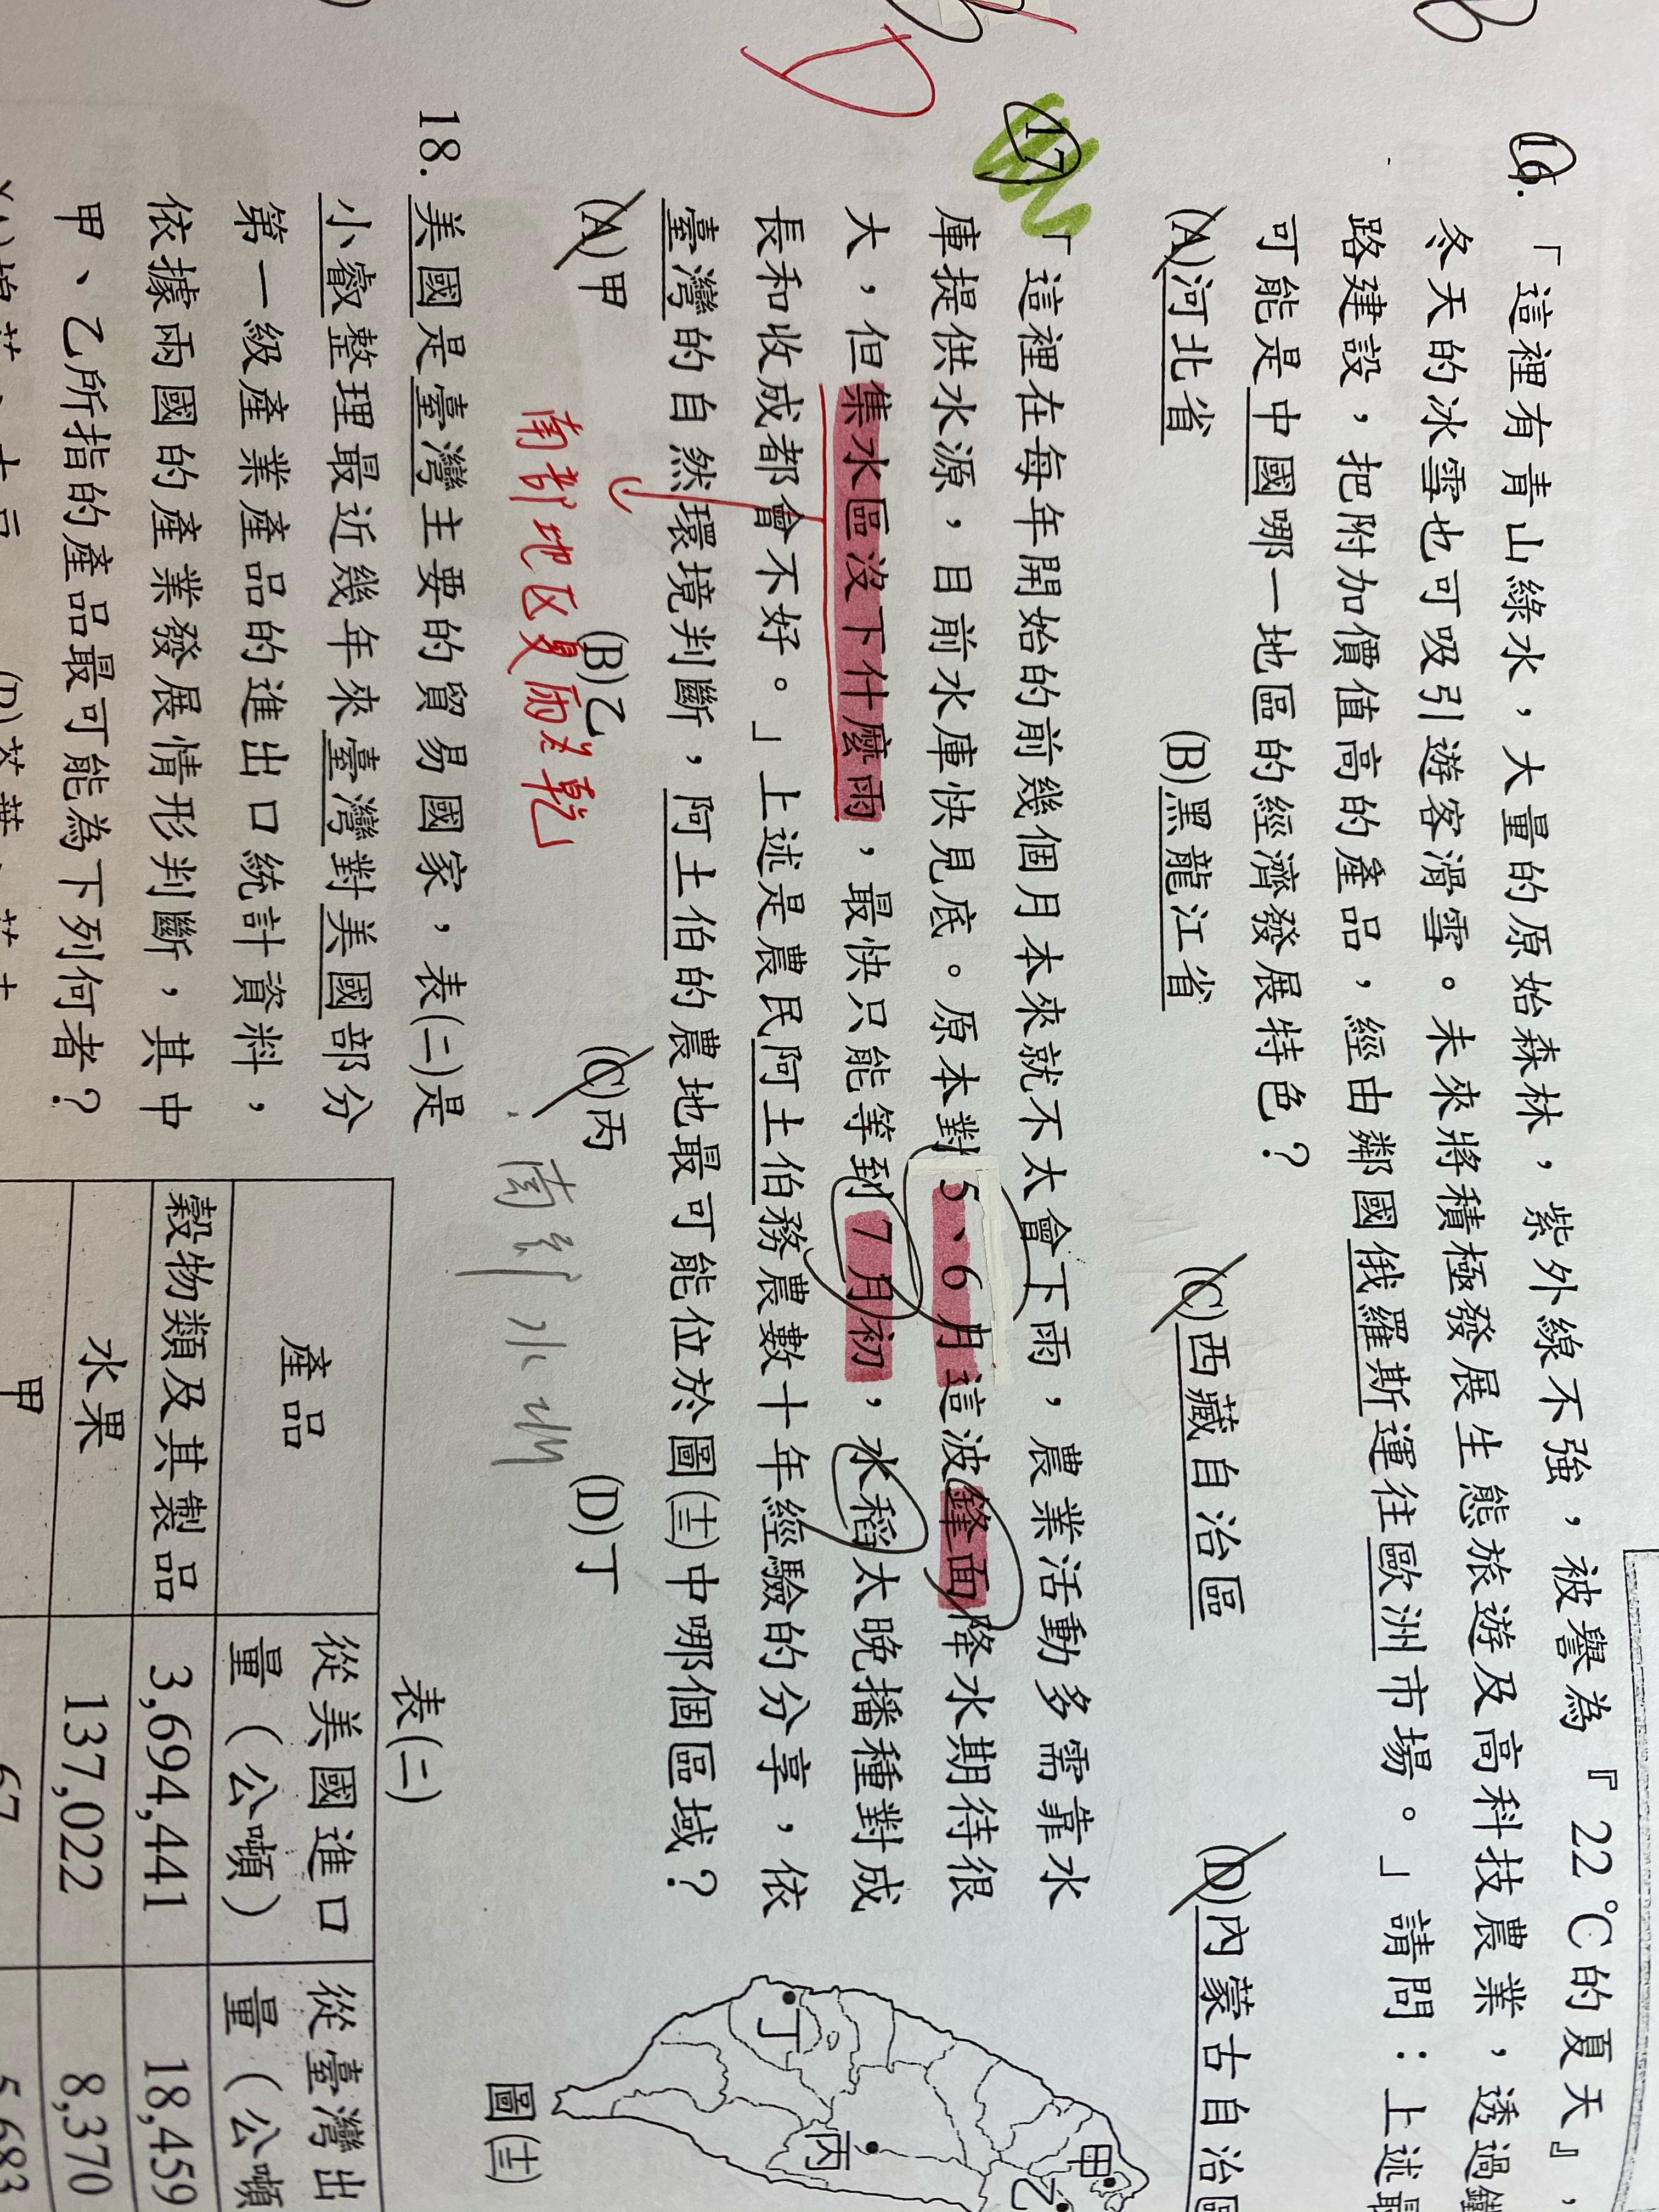 16.「這裡有青山綠水，大量的原始森林，紫外線不強，被譽為『22℃的夏天』，
冬天的冰雪也可吸引遊客滑雪。未來將積極發展生態旅遊及高科技農業，透過鐵
路建設，把附加價值高的產品，經由鄰國俄羅斯運往歐洲市場。」請問：上述最
可能是中國哪一地區的經濟發展特色？
(A)河北省 (B)黑龍江省 (C)西藏自治區 (D)內蒙古自治區
B
17.「這裡在每年開始的前幾個月本來就不太會下雨，農業活動多需靠水
庫提供水源，目前水庫快見底。原本對5、6月這波鋒面降水期待很
大，但集水區沒下什麼雨，最快只能等到7月初，水稻太晚播種對成
長和收成都會不好。」上述是農民阿土伯務農數十年經驗的分享，依
臺灣的自然環境判斷，阿土伯的農地最可能位於圖(十三)中哪個區域？
(A)甲 (B)乙 (C)丙 (D)丁
D
南部地区夏雨冬乾
甲
乙
丙
丁
圖(十三)
18. 美國是臺灣主要的貿易國家，表(二)是
小叡整理最近幾年來臺灣對美國部分
第一級產業產品的進出口統計資料，
依據兩國的產業發展情形判斷，其中
甲、乙所指的產品最可能為下列何者？
表(二)
產品 從美國進口量（公噸） 從臺灣出量（公噸
穀物類及其製品 3,694,441 18,459
水果 137,022 8,370
甲 67 5,683